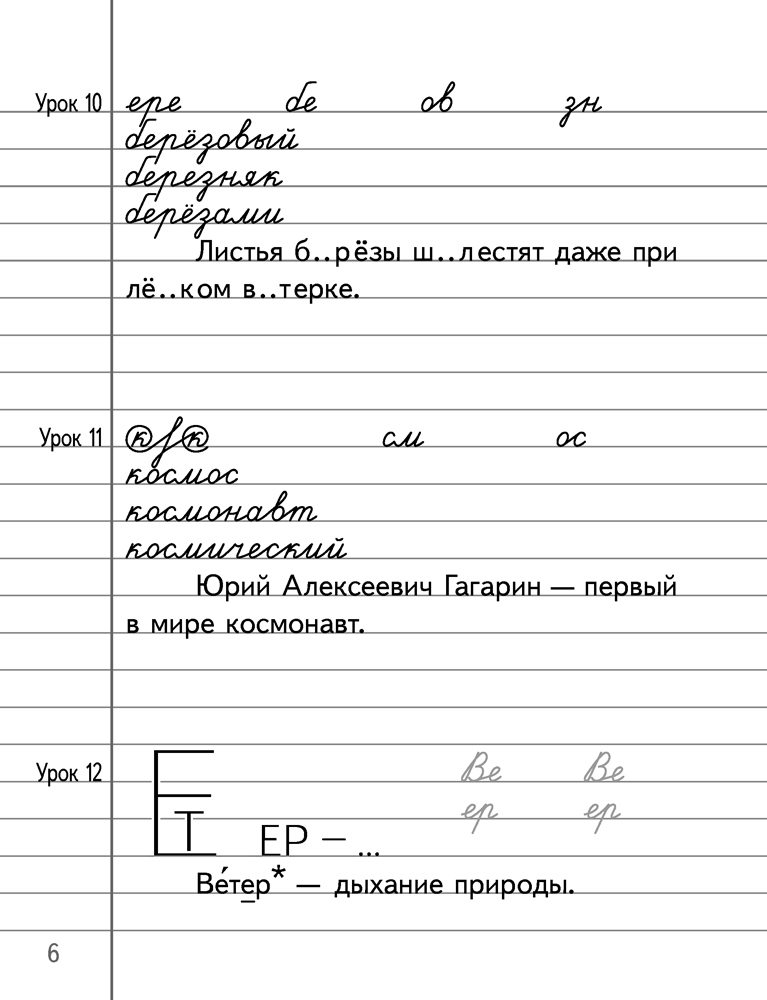 Урок 10 ере бе ов зн
берёзовый
березняк
берёзами
Листья б..рёзы ш..лестят даже при
лё..ком в..терке.
Урок 11 к к см ос
космос
космонавт
космический
Юрий Алексеевич Гагарин — первый
в мире космонавт.
Урок 12 Е Ве Ве
ер ер
Т ЕР – ...
Ве́тер* — дыхание природы.
6